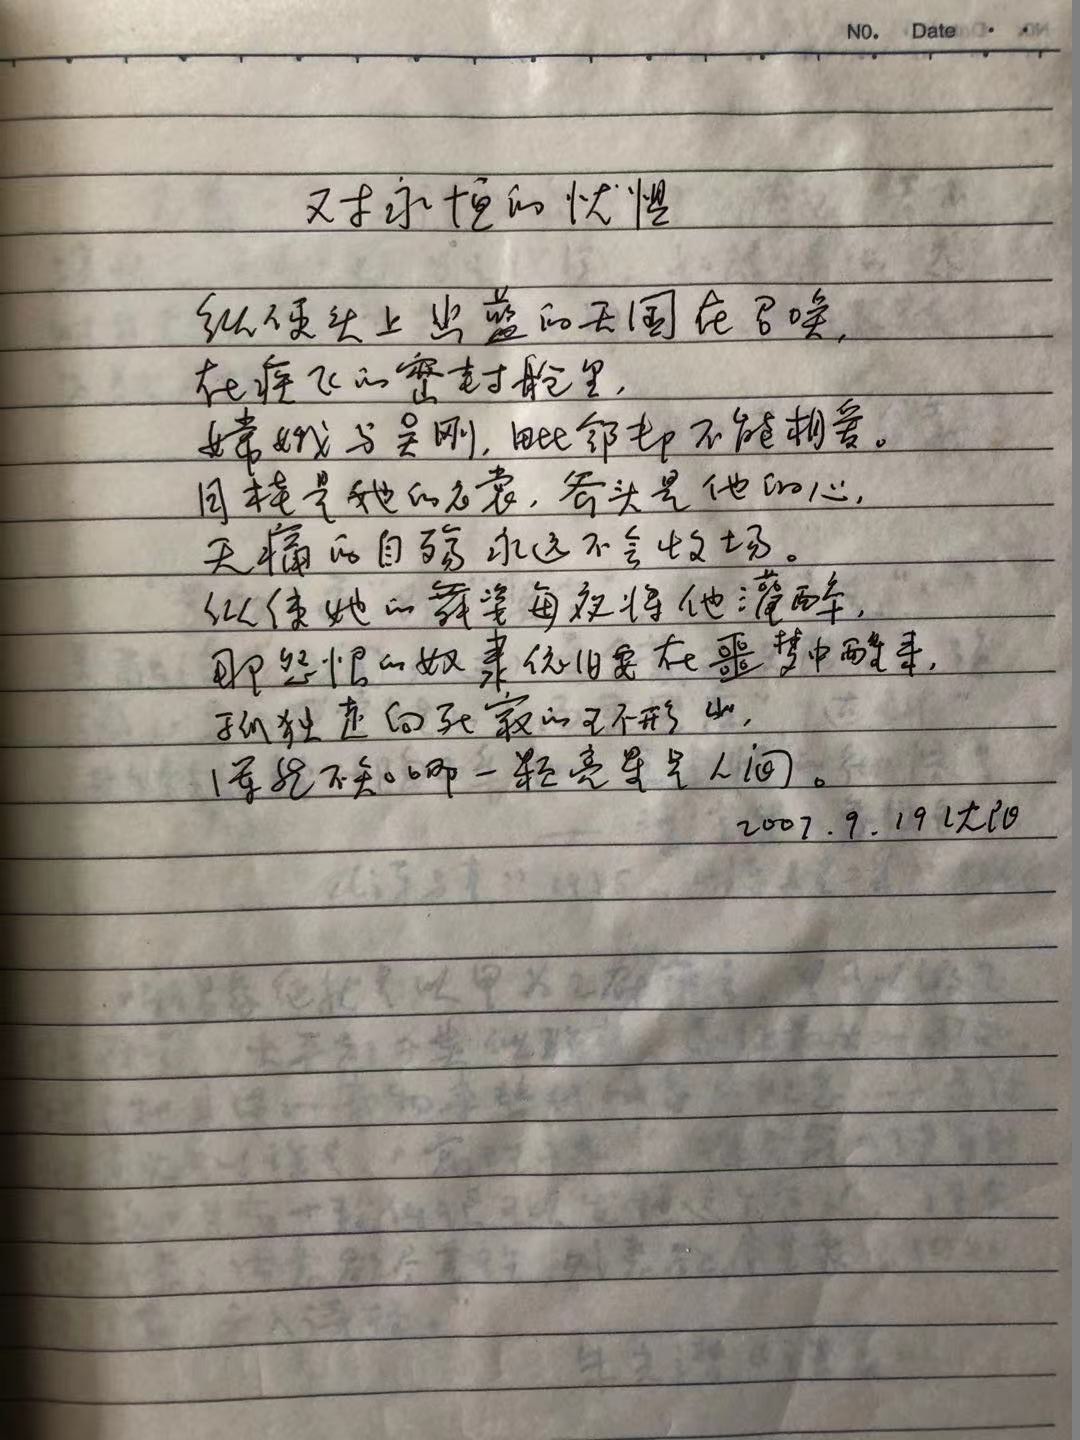 NO.    Date
对永恒的忧惧
纵使头上幽蓝的天国在召唤,
在疾飞的密封舱里,
嫦娥与吴刚,毗邻却不能相爱。
月桂是她的衣裳,斧头是他的心,
无痛的自殇永远不会收场。
纵使她的舞姿每夜将他灌醉,
那怨恨的奴隶依旧要在噩梦中醒来,
孤独走向死寂的环形山,
谁能不知哪一颗亮星是人间。
2007.9.19 沈阳